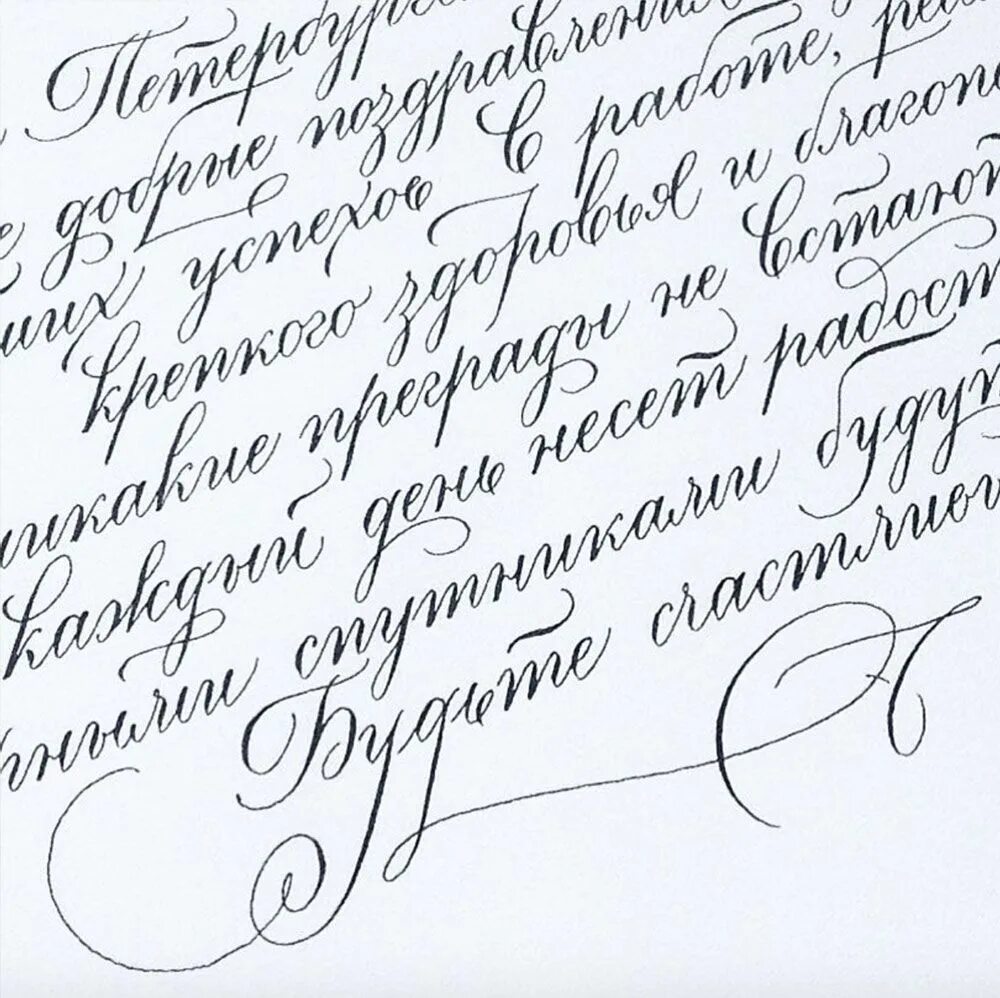 Петербург
е добрые поздравления
ших успехов в работе,
крепкого здоровья и благопо
никакие преграды не встают
каждый день несет радост
ными спутниками будут
Будьте счастливы